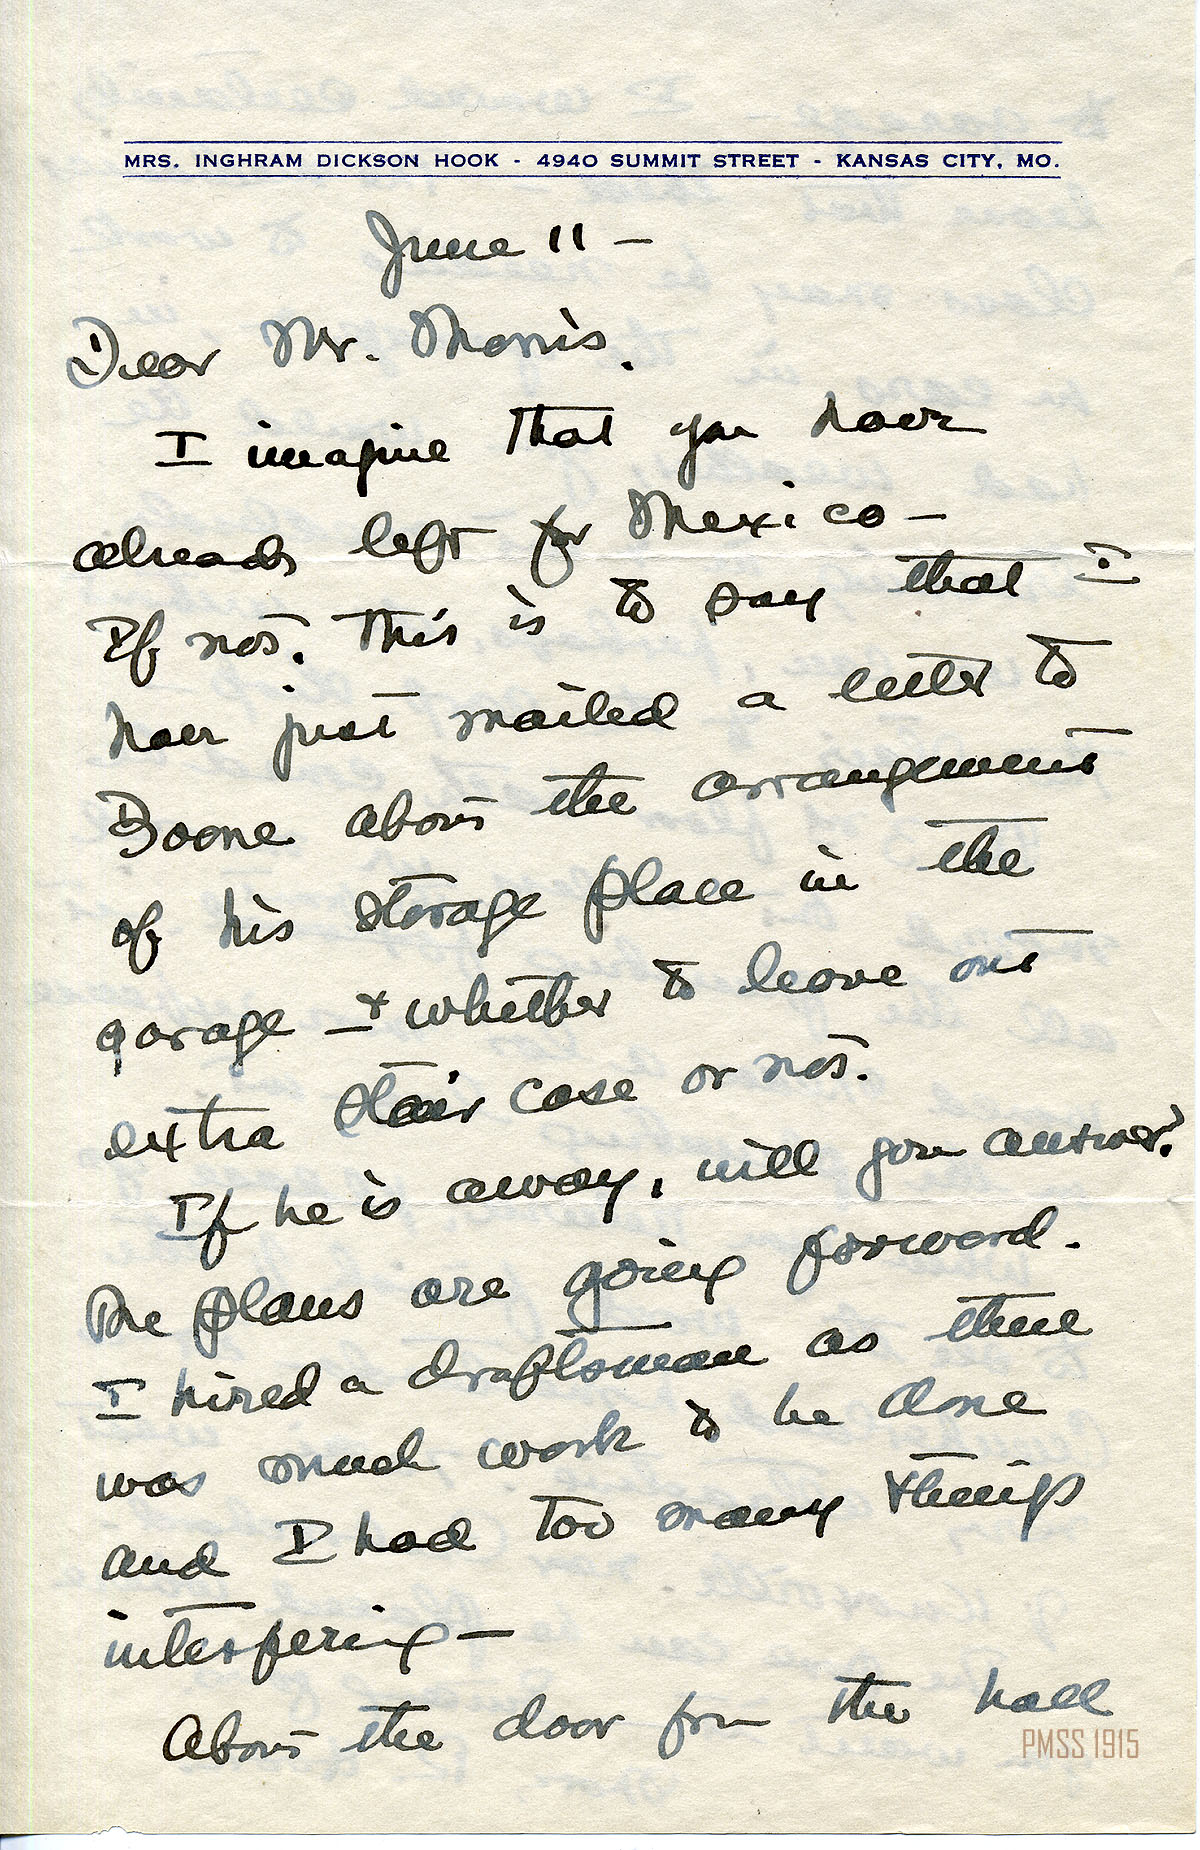 MRS. INGHRAM DICKSON HOOK - 4940 SUMMIT STREET - KANSAS CITY, MO.
June 11 —
Dear Mr. Morris.
I imagine that you have
already left for Mexico —
If not, this is to say that I
have just mailed a letter to
Boone about the arrangement
of his storage place in the
garage — & whether to leave out
extra stair case or not.
If he is away, will you answer?
The plans are going forward.
I hired a draftsman as there
was much work to be done
and I had too many things
interfering —
About the door from the hall
PMSS 1915